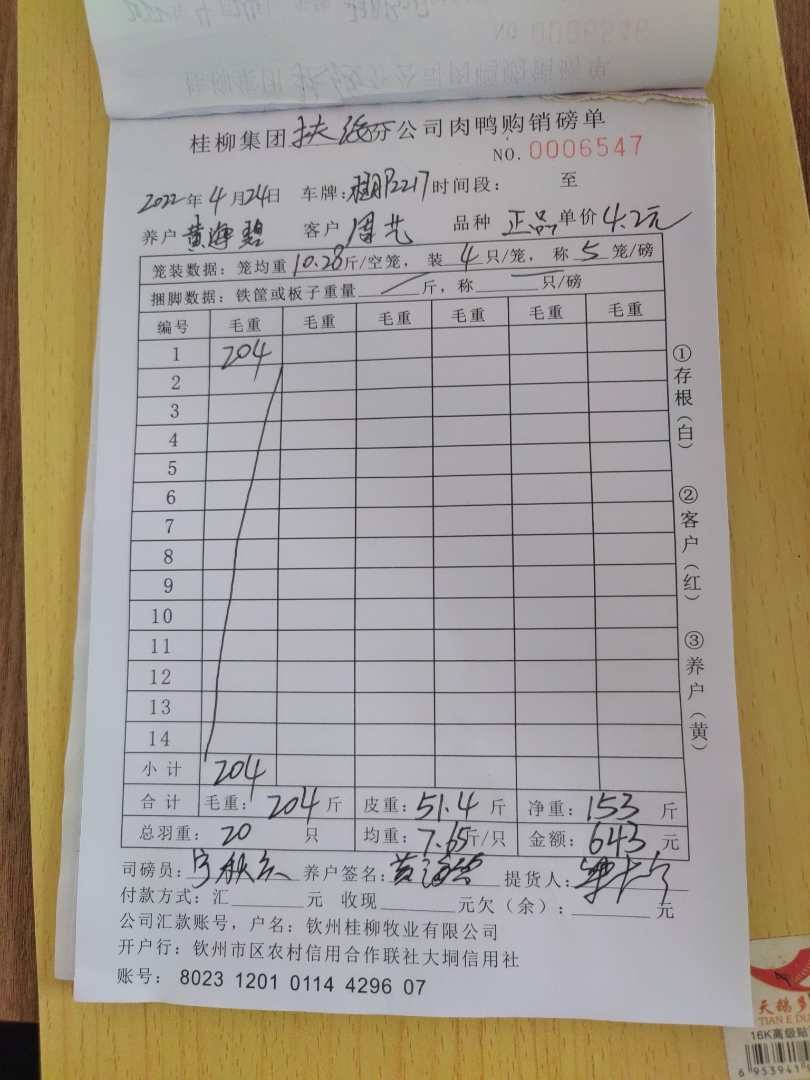 0006546
桂柳集团 扶绥分公司肉鸭购销磅单
NO. 0006547
2022年 4月24日 车牌: P2217 时间段: 至
养户 黄海碧 客户 周艺 品种 正品 单价 4.2元
笼装数据: 笼均重 10.28斤/空笼, 装 4 只/笼, 称 5 笼/磅
捆脚数据: 铁筐或板子重量 斤, 称 只/磅
编号 毛重 毛重 毛重 毛重 毛重 毛重
1 204
2
3
4
5
6
7
8
9
10
11
12
13
14
小计 204
合计 毛重: 204 斤 皮重: 51.4 斤 净重: 153 斤
总羽重: 20 只 均重: 7.65斤/只 金额: 643 元
司磅员: 养户签名: 提货人:
付款方式: 汇 元 收现 元欠(余): 元
公司汇款账号, 户名: 钦州桂柳牧业有限公司
开户行: 钦州市区农村信用合作联社大垌信用社
账号: 8023 1201 0114 4296 07
①存根(白)
②客户(红)
③养户(黄)
TIAN E DU
16K高级贴
6 953941